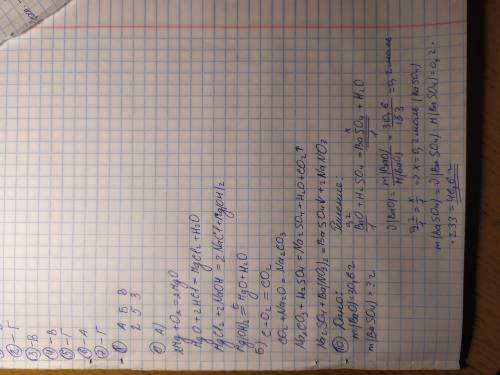 ②-Г
③-В
④-В
⑤-Г
⑥-А
⑦-Г
⑧ А Б В
2 5 3
⑨ А)
2Mg+O₂=2MgO
MgO+2HCl=MgCl₂+H₂O
MgCl₂+2NaOH=2NaCl+Mg(OH)₂
Mg(OH)₂ =t MgO+H₂O
Б) C+O₂=CO₂
CO₂+Na₂O=Na₂CO₃
Na₂CO₃+H₂SO₄=Na₂SO₄+H₂O+CO₂↑
Na₂SO₄+Ba(NO₃)₂=BaSO₄↓+2NaNO₃
⑩ Дано:
m(BaO)=30,6 г
m(BaSO₄)=? г
Решение:
0,2 x
BaO+H₂SO₄=BaSO₄+H₂O
1 1
ν(BaO)=m(BaO)/M(BaO)=30,6/153=0,2 моль
0,2/1=x/1 => x=0,2 моль (BaSO₄)
m(BaSO₄)=ν(BaSO₄)·M(BaSO₄)=0,2·
·233=46,6 г